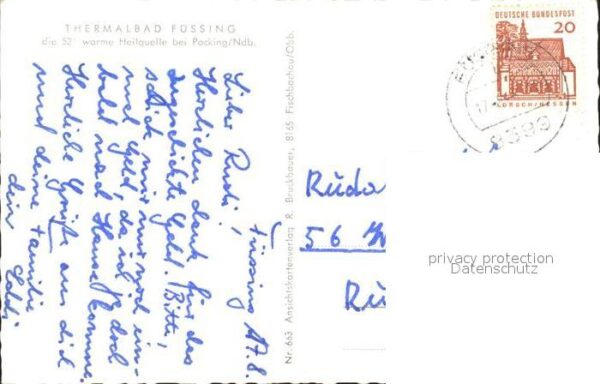 THERMALBAD FÜSSING
die 52° warme Heilquelle bei Pocking/Ndb.
Füssing 17.8.
Lieber Rudi,
Herzlichen dank für das
zugeschickte Geld. Bitte,
schick mir noch ein-
mal Geld, da ich doch
bald nach Hause komme.
Herzliche Grüße an dich
und deine Familie
dein
Nr. 663 Ansichtskartenverlag R. Bruckbauer, 8165 Fischbachau/Obb.
DEUTSCHE BUNDESPOST
20
LORSCH/HESSEN
17
8399
56
privacy protection
Datenschutz